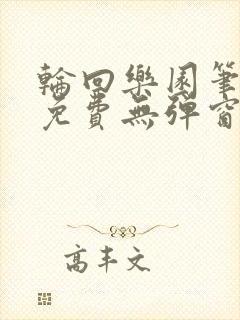 輪回樂園筆
免費無彈窗
高丰文